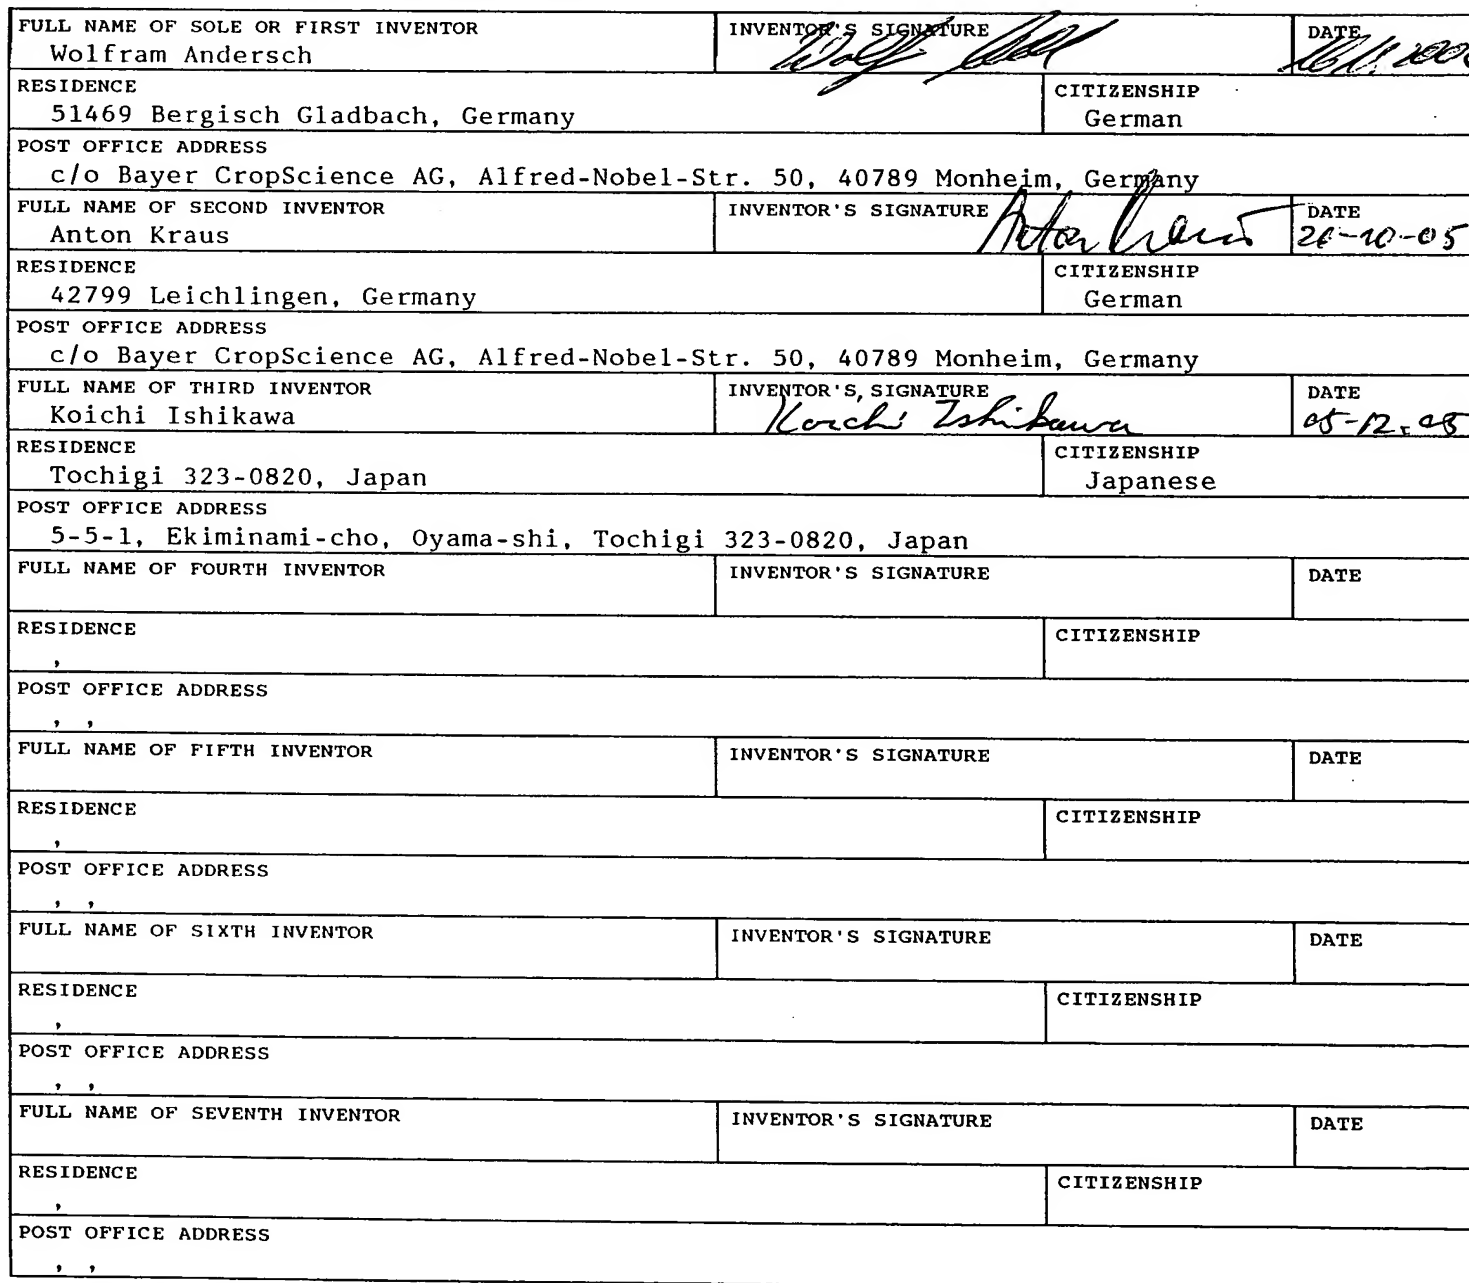 FULL NAME OF SOLE OR FIRST INVENTOR INVENTOR'S SIGNATURE DATE
Wolfram Andersch
RESIDENCE CITIZENSHIP
51469 Bergisch Gladbach, Germany German
POST OFFICE ADDRESS
c/o Bayer CropScience AG, Alfred-Nobel-Str. 50, 40789 Monheim, Germany
FULL NAME OF SECOND INVENTOR INVENTOR'S SIGNATURE DATE
Anton Kraus Anton Kraus
RESIDENCE CITIZENSHIP
42799 Leichlingen, Germany German
POST OFFICE ADDRESS
c/o Bayer CropScience AG, Alfred-Nobel-Str. 50, 40789 Monheim, Germany
FULL NAME OF THIRD INVENTOR INVENTOR'S SIGNATURE DATE
Koichi Ishikawa Koichi Ishikawa 05-12.05
RESIDENCE CITIZENSHIP
Tochigi 323-0820, Japan Japanese
POST OFFICE ADDRESS
5-5-1, Ekiminami-cho, Oyama-shi, Tochigi 323-0820, Japan
FULL NAME OF FOURTH INVENTOR INVENTOR'S SIGNATURE DATE
RESIDENCE CITIZENSHIP
,
POST OFFICE ADDRESS
, ,
FULL NAME OF FIFTH INVENTOR INVENTOR'S SIGNATURE DATE
RESIDENCE CITIZENSHIP
,
POST OFFICE ADDRESS
, ,
FULL NAME OF SIXTH INVENTOR INVENTOR'S SIGNATURE DATE
RESIDENCE CITIZENSHIP
,
POST OFFICE ADDRESS
, ,
FULL NAME OF SEVENTH INVENTOR INVENTOR'S SIGNATURE DATE
RESIDENCE CITIZENSHIP
,
POST OFFICE ADDRESS
, ,